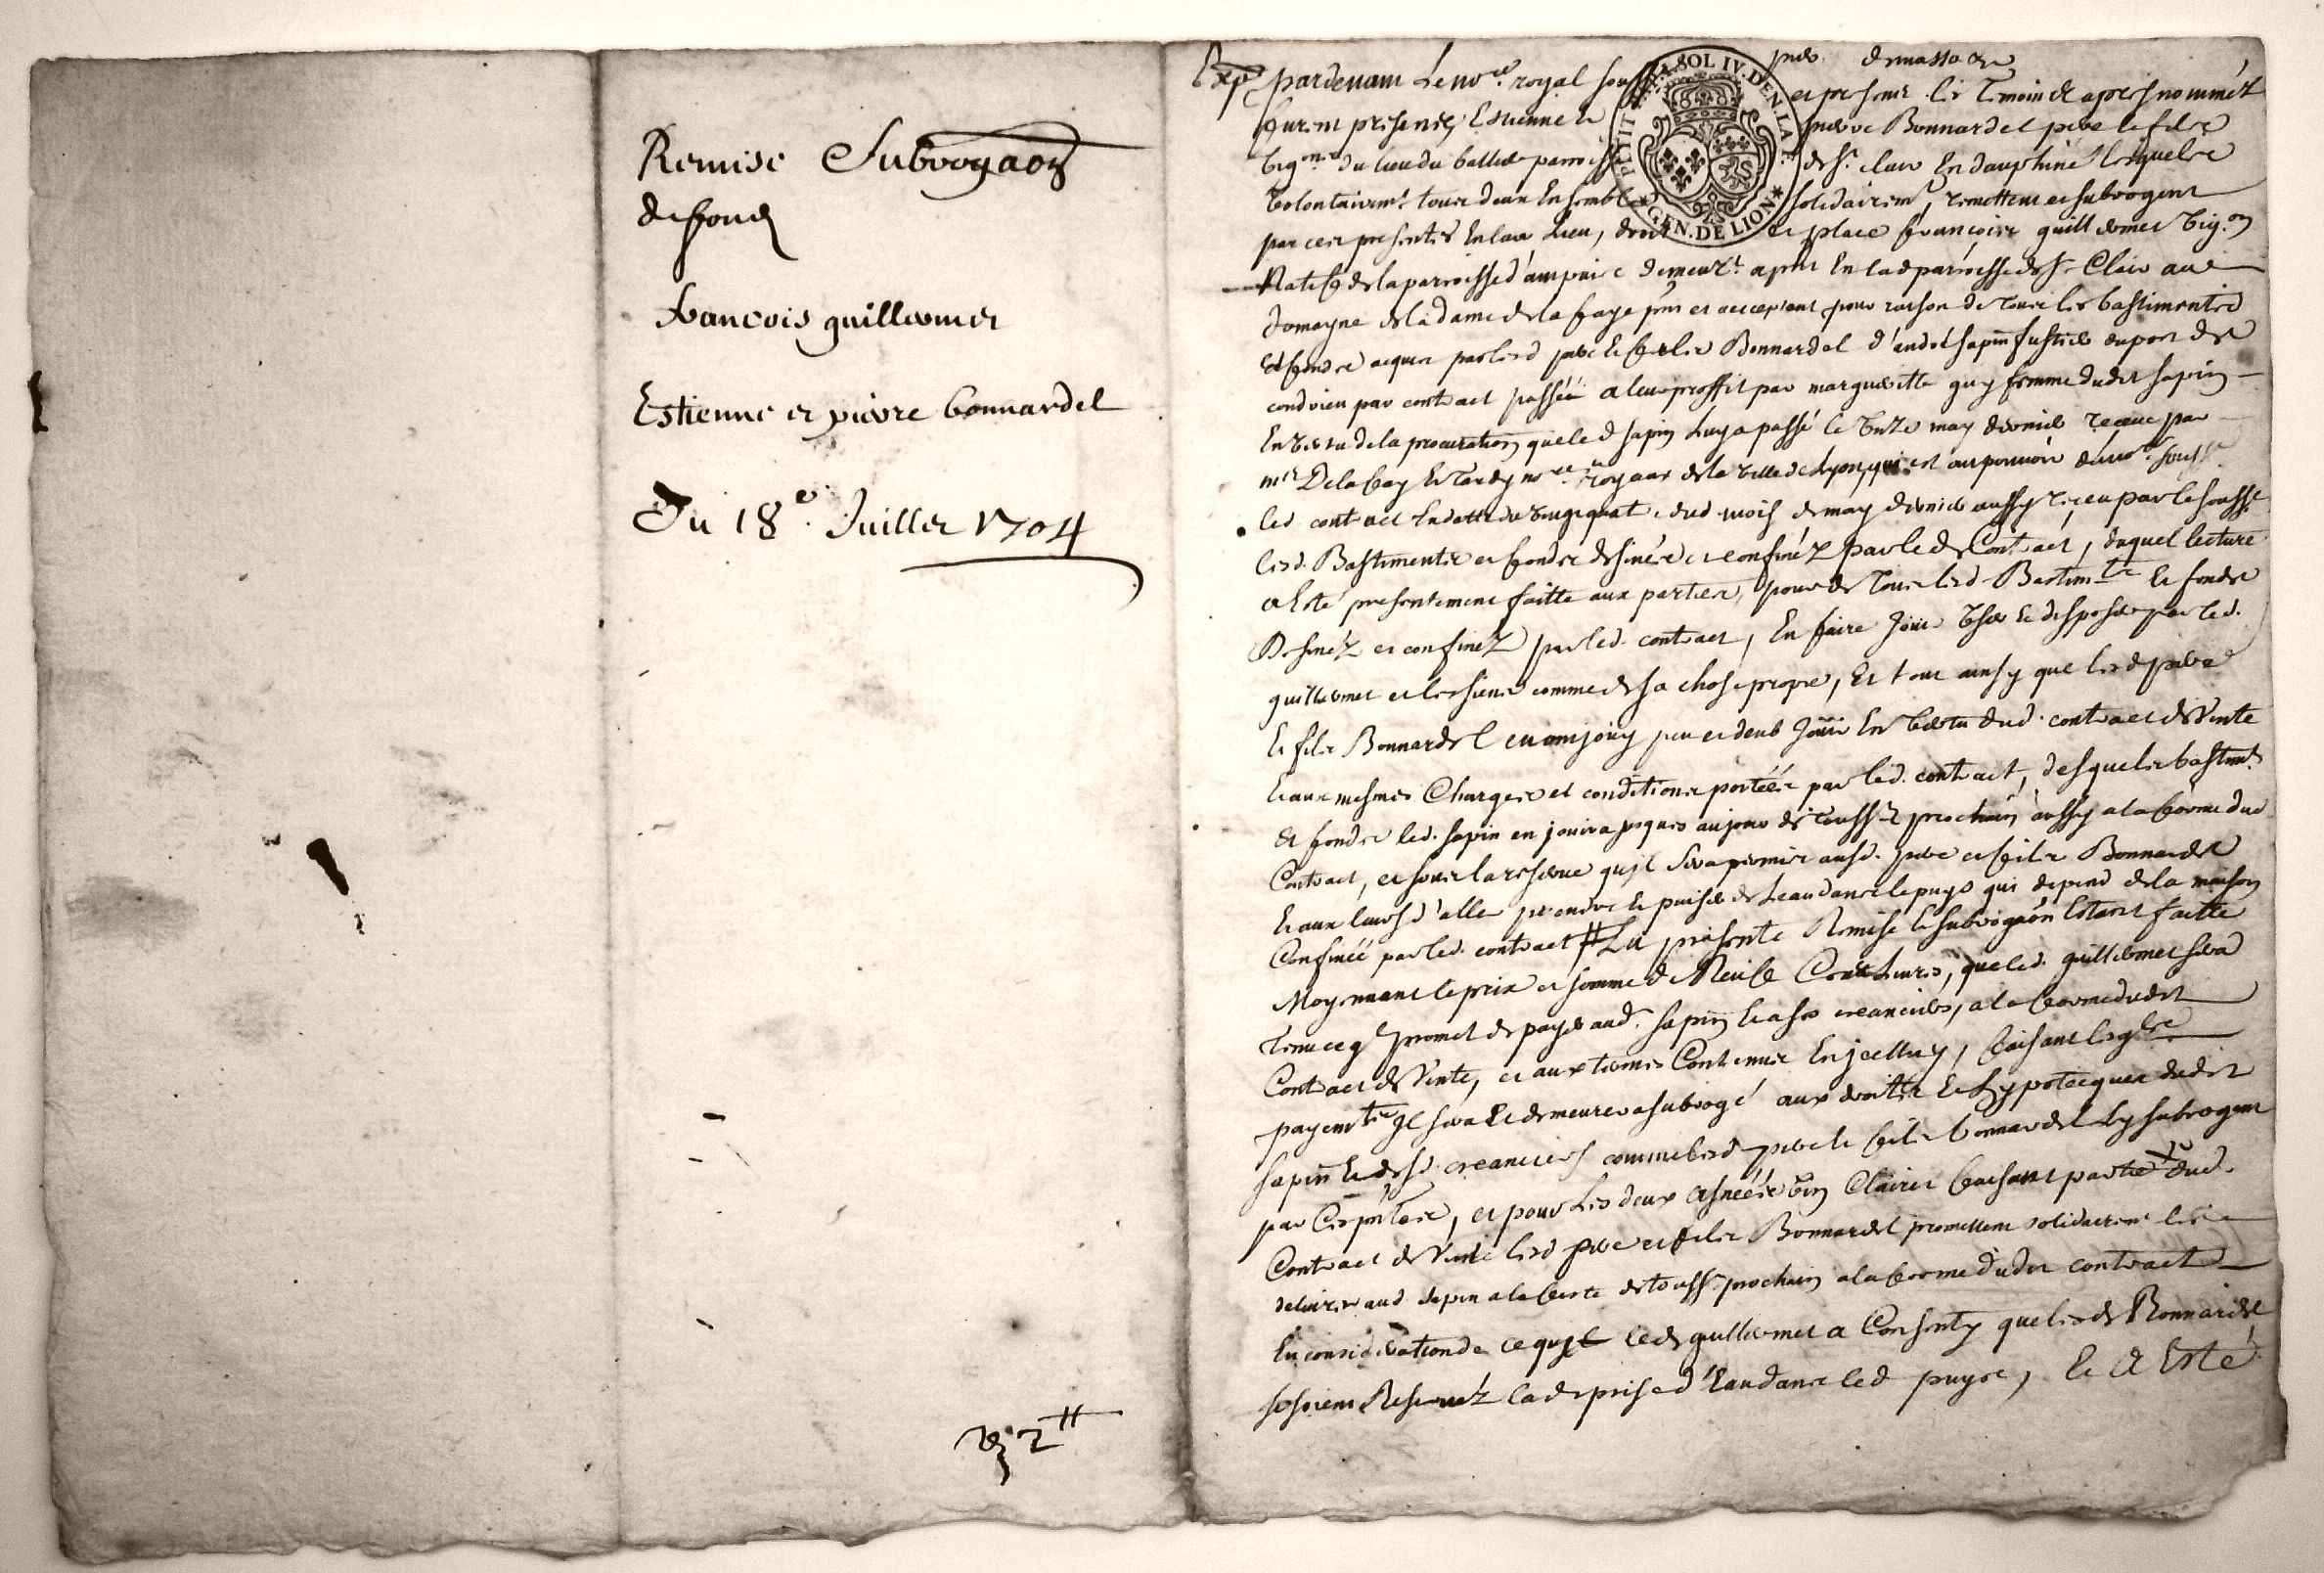 Remise Subrogaon
de fond
francois guillermet
Estienne et pierre bonnardel
Du 18e. Juillet 1704
2 ₶
PETIT SOL IV. DEN. LA F.
GEN. DE LION
Exp
pardevant Le nore. royal souss et presence les Temoin et apres nommez
furent presents Estienne et pierre Bonnardel pere et filz
vignon du lieu du parroisse de St. clair En dauphiné lesquelz
volontairemt. tous deux Ensemble solidairemt, remettent et subrogent
par ces presentes En leur Lieu, droit et place francois guillermet vigon
Natif de la parroisse d'ampuis demeurt. a pnt En lad parroisse de St Clair au
domayne de la dame de la faye pnt et acceptant pour raison de tous les bastimentz
et fondz acquis par lesd pere et filz Bonnardel d'andré sapin du port de
condrieu par contract passée a leur proffit par margueritte guy femme dudit sapin
En vertu de la procuration que led sapin Luy a passé le unze may dernier receue par
royaux de la ville de Lyon, qui est au pouvoir dud nore. souss
led contract En datte du vingt quat dud mois de may dernier aussy receu par le souss
lesd. Bastimentz et fondz desinés et confinéz par led Contract, duquel lecture
a Esté presentement faitte aux parties, pour de Tous lesd Bastimtz et fondz
Desinéz et confinéz par led. contract, En faire Jouir User et disposer par led.
guillermet et les siens comme de sa chose propre, Et tout ainsy que lesd pere
et filz Bonnardel en ont jouy peu et deub Jouir En vertu dud. contract de Vente
et aux mesmes Charges et conditions portées par led. contract, desquelz bastimts.
et fondz led. sapin en jouira jusques au jour de Toussts prochain aussy a la forme dud
Contract, et sous la reserve qu'il sera permis ausd. pere et filz Bonnardel
et aux leurs d'aller prendre et puiser de Leau dans le puys qui depend de la maison
Confinée par led. contract La presente Remise et subrogaon Estant faitte
Moyennant le prix et somme de Neuf Cent Livres, que led. guillermet sera
Tenu et promet de payer aud. sapin et a ses creanciers, a la forme dudit
Contract de Vente, et aux termes Contenus En jcelluy, faisant lesqlz
payemtz Il sera et demeurera subrogé aux droitz et hypotecques dudit
sapin et desd. creanciers comme lesd pere et filz bonnardel Ly subrogent
par Ces pntes, et pour Les deux Asnées vin Clairet faisant partie du dud.
Contract de Vente lesd pere et filz Bonnardel promettent solidairemt les
delivrer aud sapin a la feste de Touss prochain a la forme dudit contract
En consideration de ce que led guillermet a Consenty que lesd Bonnardel
se soient Reservéz lad prise d'Eau dans led puys, et A Esté